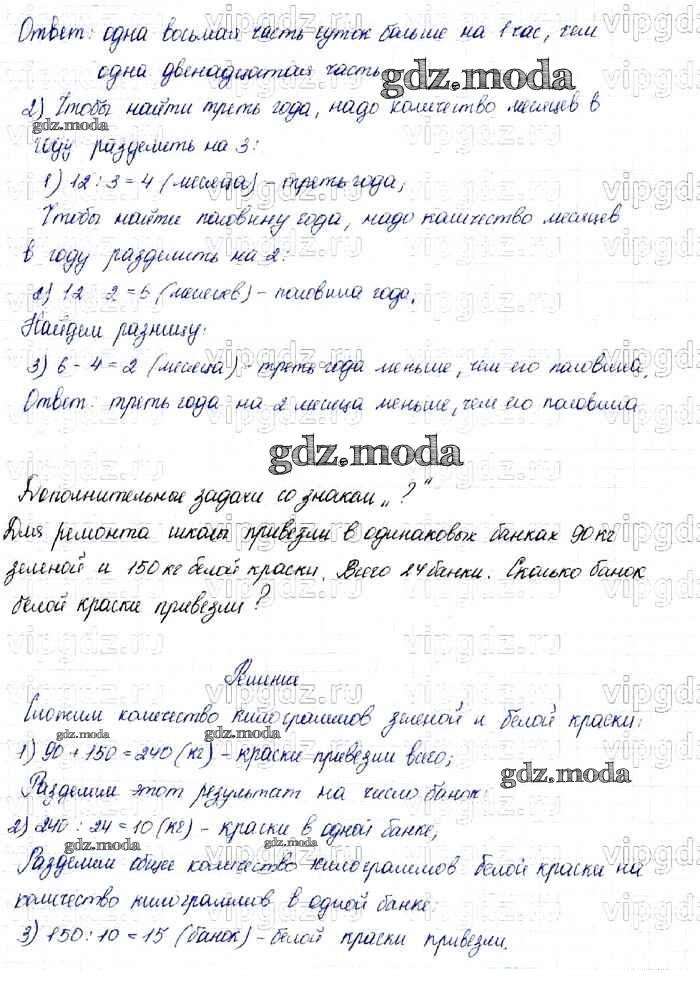 Ответ: одна восьмая часть суток больше на 1 час, чем
одна двенадцатая часть
gdz.moda
2) Чтобы найти треть года, надо количество месяцев в
gdz.moda
году разделить на 3:
1) 12 : 3 = 4 (месяца) - треть года;
Чтобы найти половину года, надо количество месяцев
в году разделить на 2:
2) 12 2 = 6 (месяцев) - половина года.
Найдем разницу:
3) 6 - 4 = 2 (месяца) - треть года меньше, чем его половина.
Ответ: треть года на 2 месяца меньше, чем его половина
gdz.moda
Дополнительные задачи со знаком „?“
Для ремонта школы привезли в одинаковых банках 90 кг
зеленой и 150 кг белой краски. Всего 24 банки. Сколько банок
белой краски привезли?
Решение
Сложим количество килограммов зеленой и белой краски:
gdz.moda gdz.moda
1) 90 + 150 = 240 (кг) - краски привезли всего;
gdz.moda
Разделим этот результат на число банок:
2) 240 : 24 = 10 (кг) - краски в одной банке;
gdz.moda gdz.moda
Разделим общее количество килограммов белой краски на
количество килограммов в одной банке:
3) 150 : 10 = 15 (банок) - белой краски привезли.
vipgdz.ru